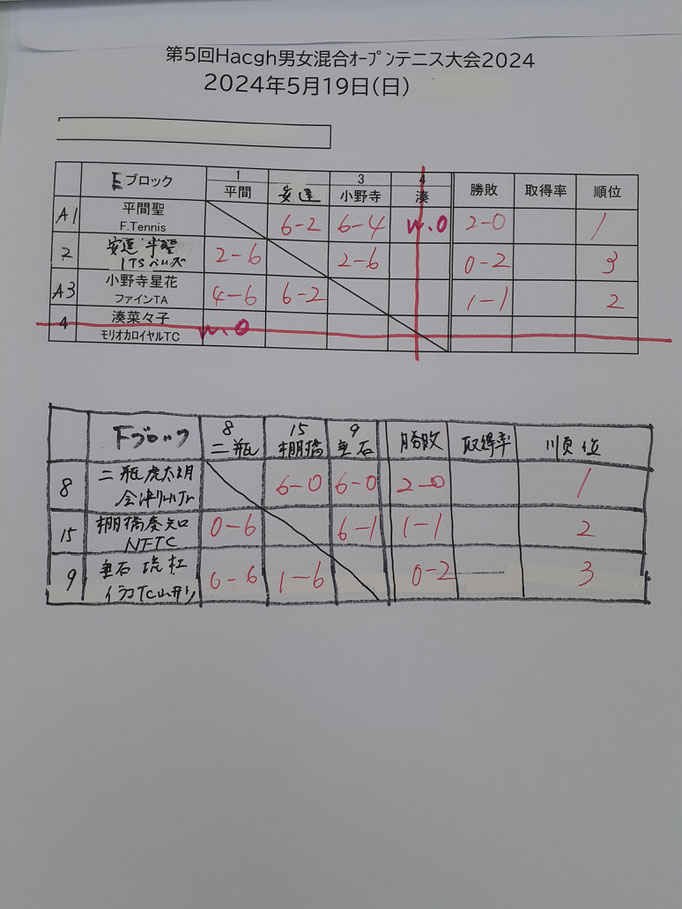 第5回Hacgh男女混合ｵｰﾌﾟﾝテニス大会2024
2024年5月19日(日)
Eブロック 1 平間 安達 3 小野寺 4 湊 勝敗 取得率 順位
A1 平間聖 6-2 6-4 W.O 2-0 1
F.Tennis
2 安達 2-6 2-6 0-2 3
ITS
A3 小野寺星花 4-6 6-2 1-1 2
ファインTA
4 湊菜々子 W.O
モリオカロイヤルTC
Fブロック 8 二瓶 15 棚橋 9 垂石 勝敗 取得率 順位
8 二瓶虎太朗 6-0 6-0 2-0 1
会津
15 棚橋奏知 0-6 6-1 1-1 2
NFTC
9 垂石 琉 0-6 1-6 0-2 3
TC山形